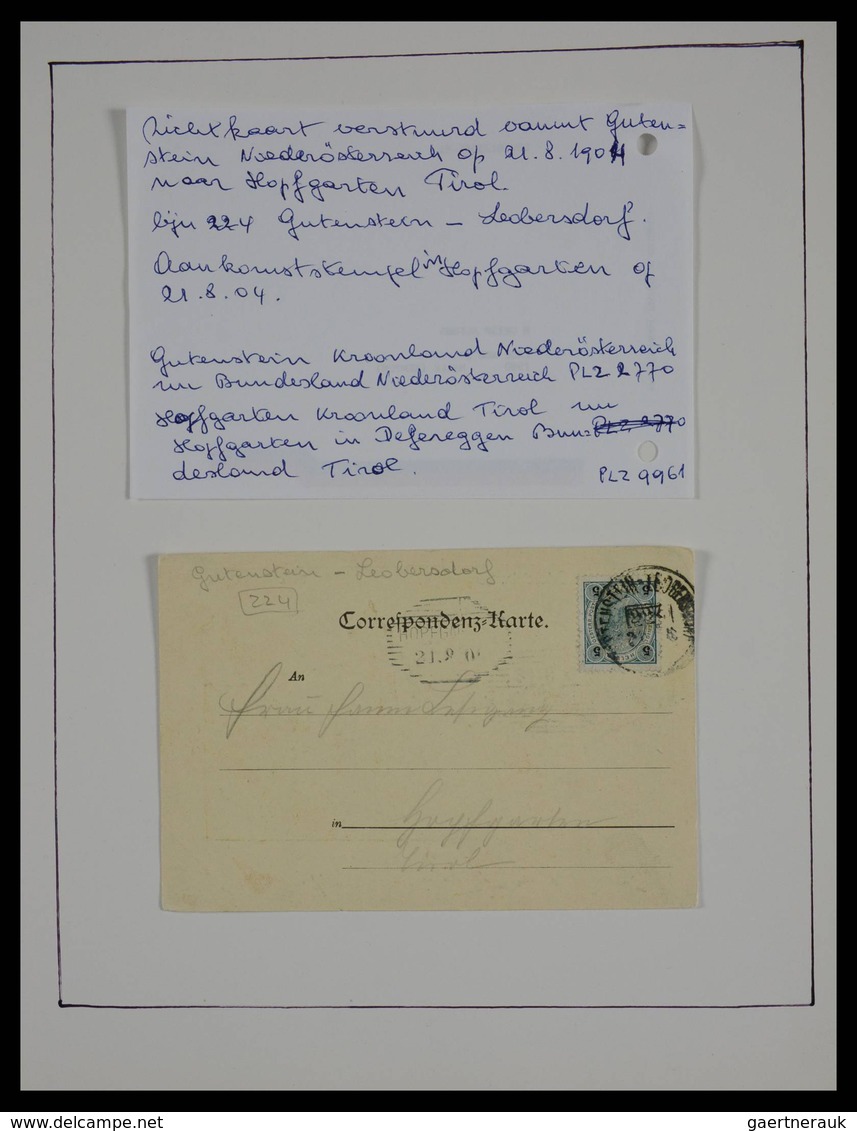 Zichtkaart verstuurd vanuit Guten=
stein Niederösterreich op 21.8.1904
naar Hopfgarten Tirol.
lijn 224 Gutenstein – Leobersdorf.
Aankomststempel in Hopfgarten op
21.8.04.
Gutenstein Kroonland Niederösterreich
nu Bundesland Niederösterreich PLZ 2770
Hopfgarten Kroonland Tirol nu
Hopfgarten in Defereggen Bun= PLZ 2770
desland Tirol. PLZ 9961
Gutenstein – Leobersdorf
224
Correspondenz-Karte.
GUTENSTEIN-LEOBERSDORF
5 5
HOPFGARTEN
21.8 04
An
Frau
in Hopfgarten
Tirol
delcampe.net
gaertnerauk